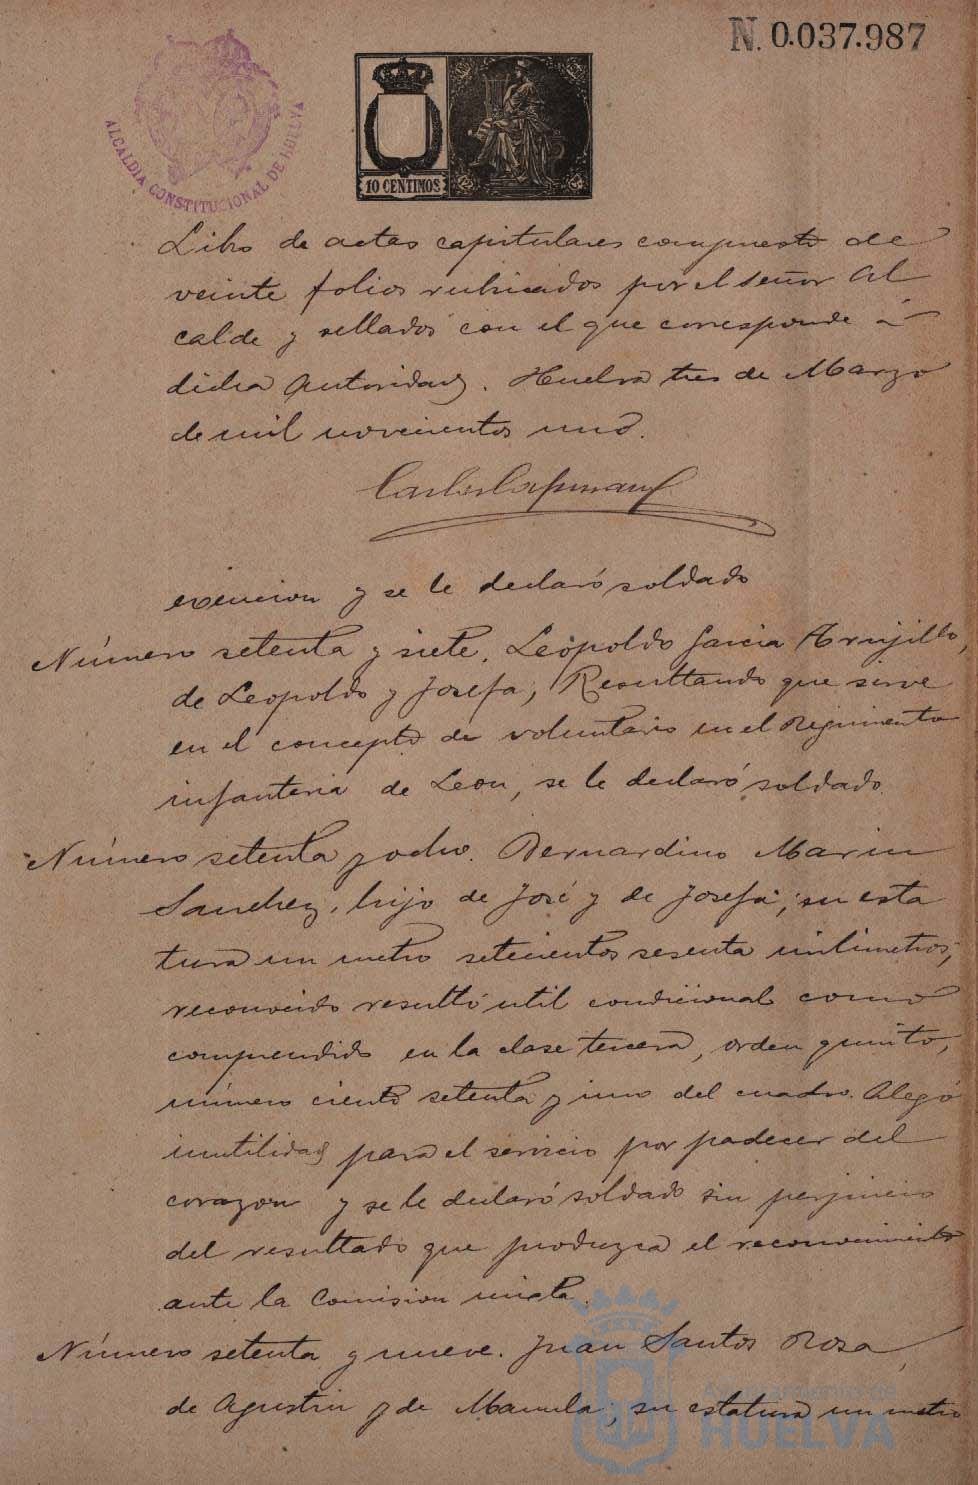 N. 0.037.987
ALCALDIA CONSTITUCIONAL DE HUELVA
10 CENTIMOS
Libro de actas capitulares compuesto de
veinte folios rubricados por el señor Al
calde y sellados con el que corresponde á
dicha Autoridad. Huelva tres de Marzo
de mil novecientos uno.
Carlos
exencion y se le declaró soldado
Número setenta y siete. Leopoldo Garcia Trujillo,
de Leopoldo y Josefa; Resultando que sirve
en el concepto de voluntario en el Regimiento
infanteria de Leon, se le declaró soldado.
Número setenta y ocho. Bernardino Marin
Sanchez, hijo de José y de Josefa; su esta
tura un metro setecientos sesenta milimetros;
reconocido resultó util condicional como
comprendido en la clase tercera, orden quinto,
número ciento setenta y uno del cuadro. Alegó
inutilidad para el servicio por padecer del
corazon y se le declaró soldado sin perjuicio
del resultado que produzca el reconocimiento
ante la Comision mixta.
Número setenta y nueve. Juan Santos Rosa,
de Agustin y de Manuela; su estatura un metro
Ayuntamiento de
HUELVA